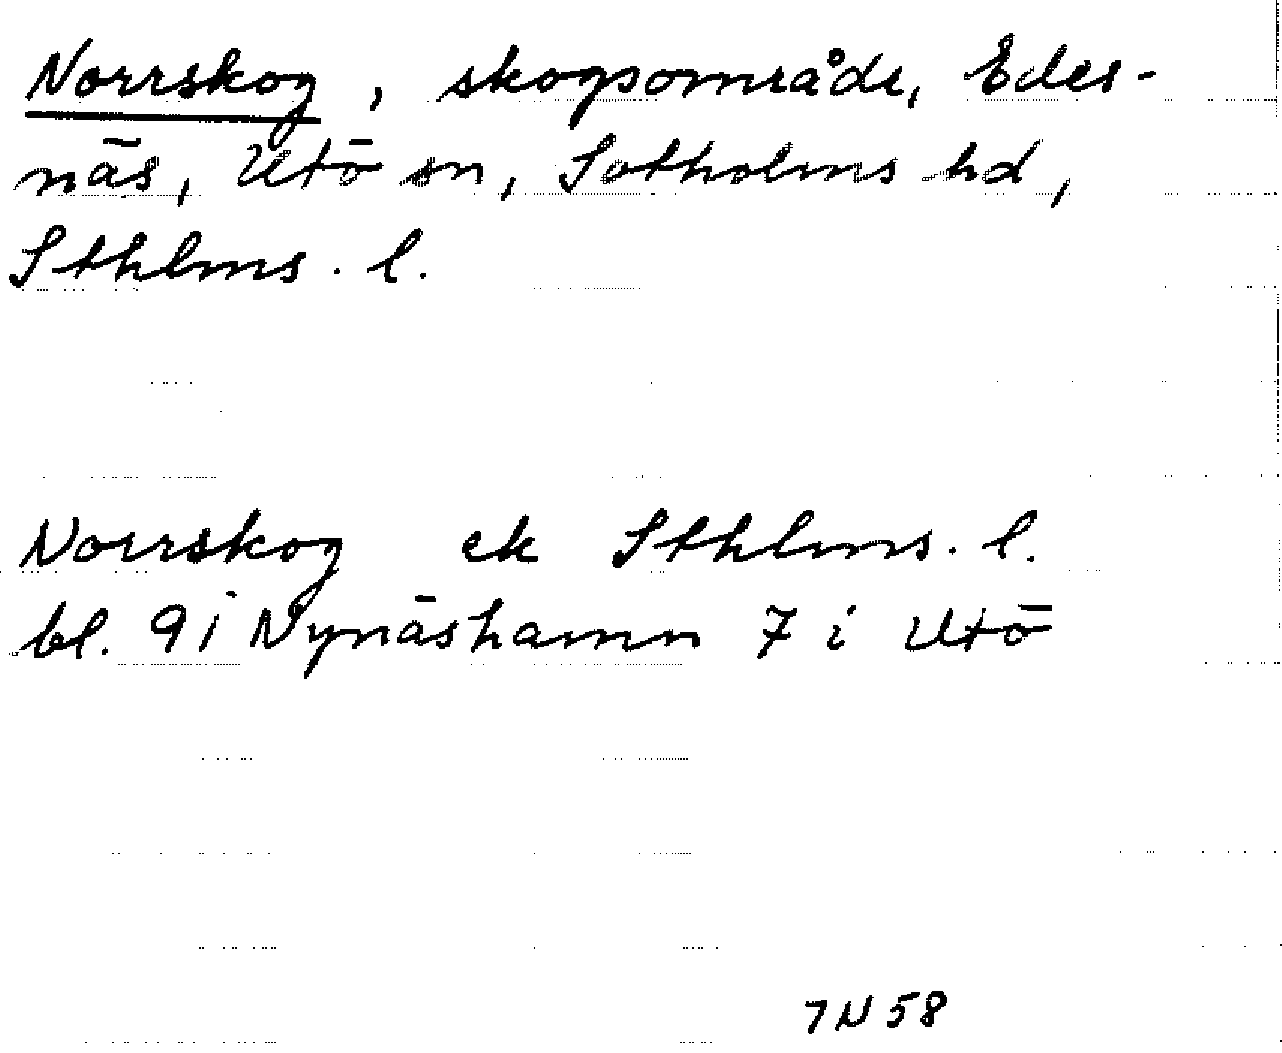 Norrskog, skogsområde, Edes-
näs, Utö sn, Sotholms hd,
Sthlms. l.
Norrskog ek Sthlms. l.
bl. 91 Nynäshamn 7 i Utö
7N58